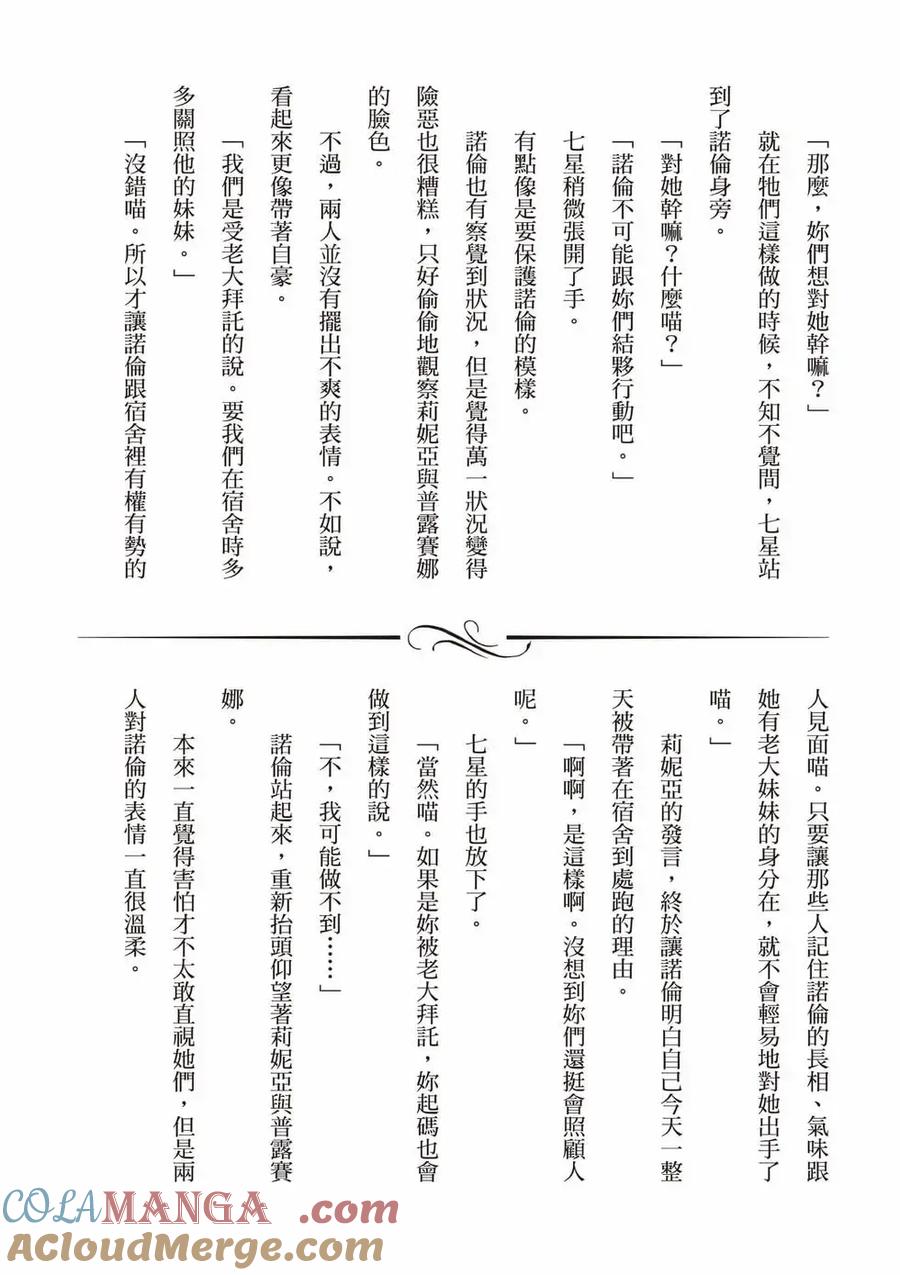 「那麼，妳們想對她幹嘛？」
就在牠們這樣做的時候，不知不覺間，七星站
到了諾倫身旁。
「對她幹嘛？什麼喵？」
「諾倫不可能跟妳們結夥行動吧。」
七星稍微張開了手。
有點像是要保護諾倫的模樣。
諾倫也有察覺到狀況，但是覺得萬一狀況變得
險惡也很糟糕，只好偷偷地觀察莉妮亞與普露賽娜
的臉色。
不過，兩人並沒有擺出不爽的表情。不如說，
看起來更像帶著自豪。
「我們是受老大拜託的說。要我們在宿舍時多
多關照他的妹妹。」
「沒錯喵。所以才讓諾倫跟宿舍裡有權有勢的
人見面喵。只要讓那些人記住諾倫的長相、氣味跟
她有老大妹妹的身分在，就不會輕易地對她出手了
喵。」
莉妮亞的發言，終於讓諾倫明白自己今天一整
天被帶著在宿舍到處跑的理由。
「啊啊，是這樣啊。沒想到妳們還挺會照顧人
呢。」
七星的手也放下了。
「當然喵。如果是妳被老大拜託，妳起碼也會
做到這樣的說。」
「不，我可能做不到……」
諾倫站起來，重新抬頭仰望著莉妮亞與普露賽
娜。
本來一直覺得害怕才不太敢直視她們，但是兩
人對諾倫的表情一直很溫柔。
COLAMANGA.com
ACloudMerge.com